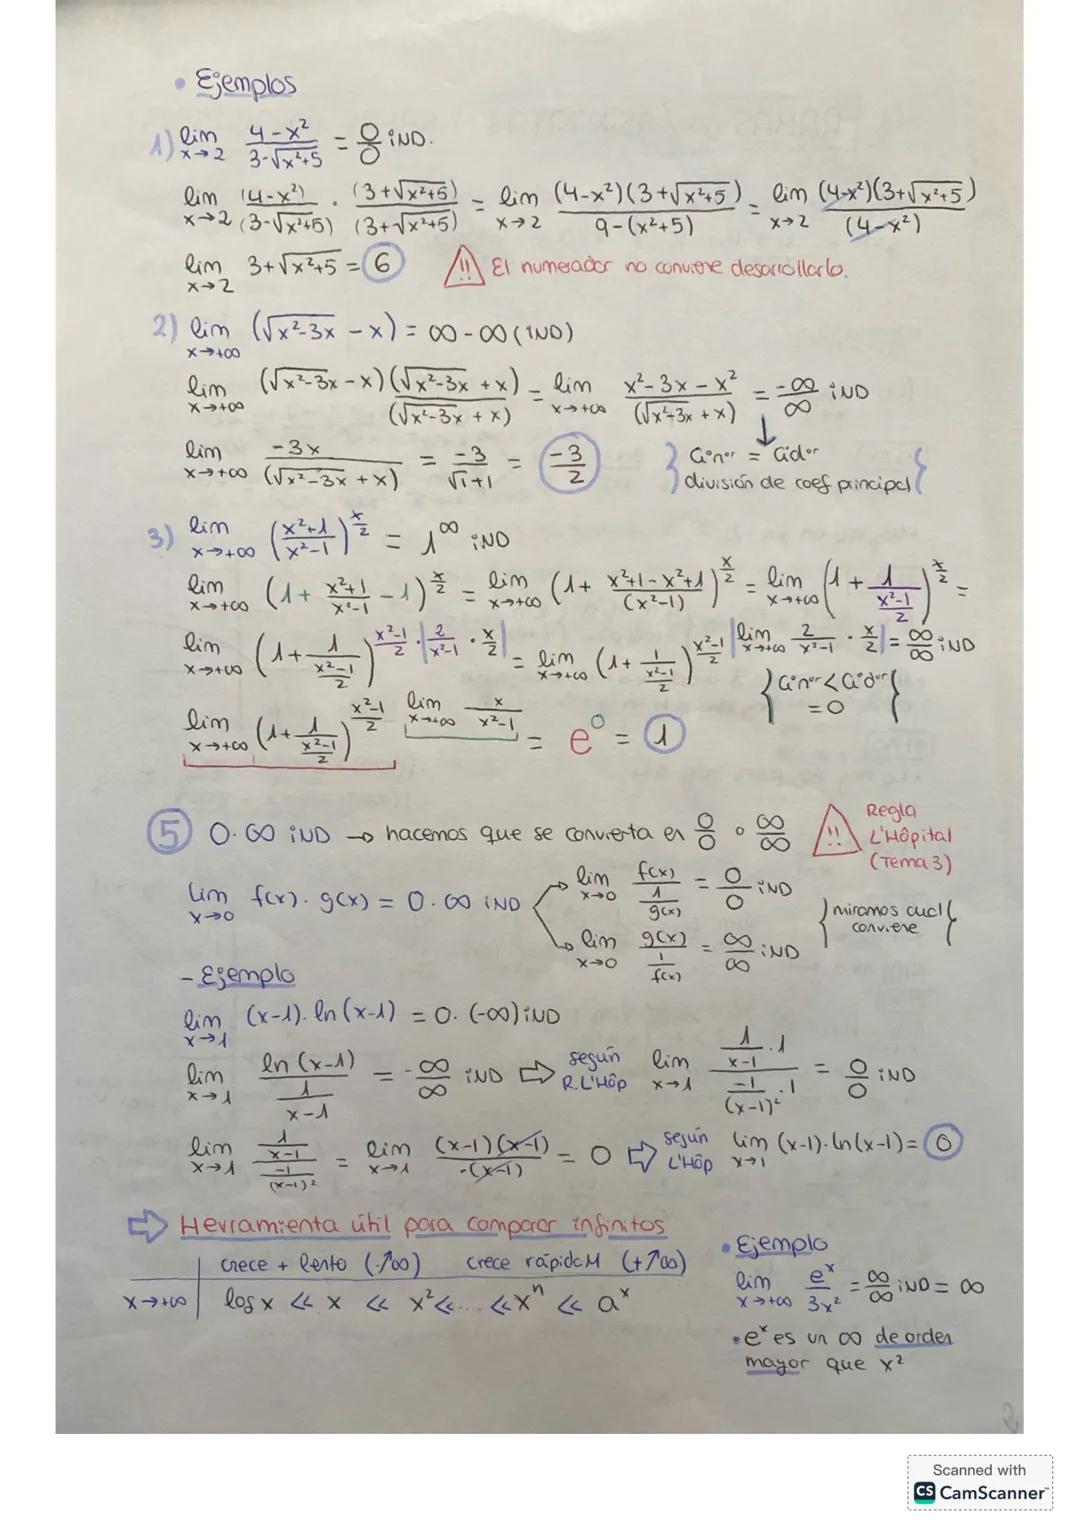 • Ejemplos
1) lim x→2 (4-x²)/(3-√x²+5) = 0/0 iND.
lim x→2 (4-x²)/(3-√x²+5) · (3+√x²+5)/(3+√x²+5) = lim x→2 (4-x²)(3+√x²+5)/(9-(x²+5)) = lim x→2 (4-x²)(3+√x²+5)/(4-x²)
lim x→2 3+√x²+5 = 6 !! El numerador no conviene desarrollarlo.
2) lim x→+∞ (√x²-3x - x) = ∞-∞ (iND)
lim x→+∞ (√x²-3x - x)(√x²-3x + x)/(√x²-3x + x) = lim x→+∞ (x²-3x-x²)/(√x²-3x + x) = -∞/∞ iND
lim x→+∞ -3x/(√x²-3x + x) = -3/(√1+1) = -3/2 } Gºnºʳ = Gºdºʳ división de coef principal {
3) lim x→+∞ ((x²+1)/(x²-1))^(x/2) = 1^∞ iND
lim x→+∞ (1+ (x²+1)/(x²-1) -1)^(x/2) = lim x→+∞ (1+ (x²+1-x²+1)/(x²-1))^(x/2) = lim x→+∞ (1+ 1/((x²-1)/2))^(x/2) =
lim x→+∞ (1+ 1/((x²-1)/2))^((x²-1)/2 · |2/(x²-1) · x/2|) = lim x→+∞ (1+ 1/((x²-1)/2))^((x²-1)/2 |lim x→+∞ 2/(x²-1) · x/2|) = ∞/∞ iND
} Gºnºʳ < Gºdºʳ = 0 {
lim x→+∞ (1+ 1/((x²-1)/2))^((x²-1)/2 lim x→+∞ x/(x²-1)) = e⁰ = 1
5 0·∞ iND → hacemos que se convierta en 0/0 o ∞/∞ !! Regla L'Hôpital (Tema 3)
lim x→0 f(x)·g(x) = 0·∞ iND
lim x→0 f(x)/(1/g(x)) = 0/0 iND
lim x→0 g(x)/(1/f(x)) = ∞/∞ iND
} miramos cual conviene {
- Ejemplo
lim x→1 (x-1)·ln(x-1) = 0·(-∞) iND
lim x→1 ln(x-1)/(1/(x-1)) = -∞/∞ iND ⇨ según R.L'Hôp lim x→1 (1/(x-1)·1)/(-1/(x-1)²·1) = 0/0 iND
lim x→1 (1/(x-1))/(-1/(x-1)²) = lim x→1 (x-1)(x-1)/-(x-1) = 0 ⇨ según L'Hôp lim x→1 (x-1)·ln(x-1) = 0
⇨ Herramienta útil para comparar infinitos
crece + lento (-↗∞) crece rápidaM (+↗∞)
x→+∞ log x << x << x² <<.... << xⁿ << aˣ
• Ejemplo
lim x→+∞ eˣ/3x² = ∞/∞ iND = ∞
• eˣ es un ∞ de orden
mayor que x²
Scanned with
CS CamScanner™